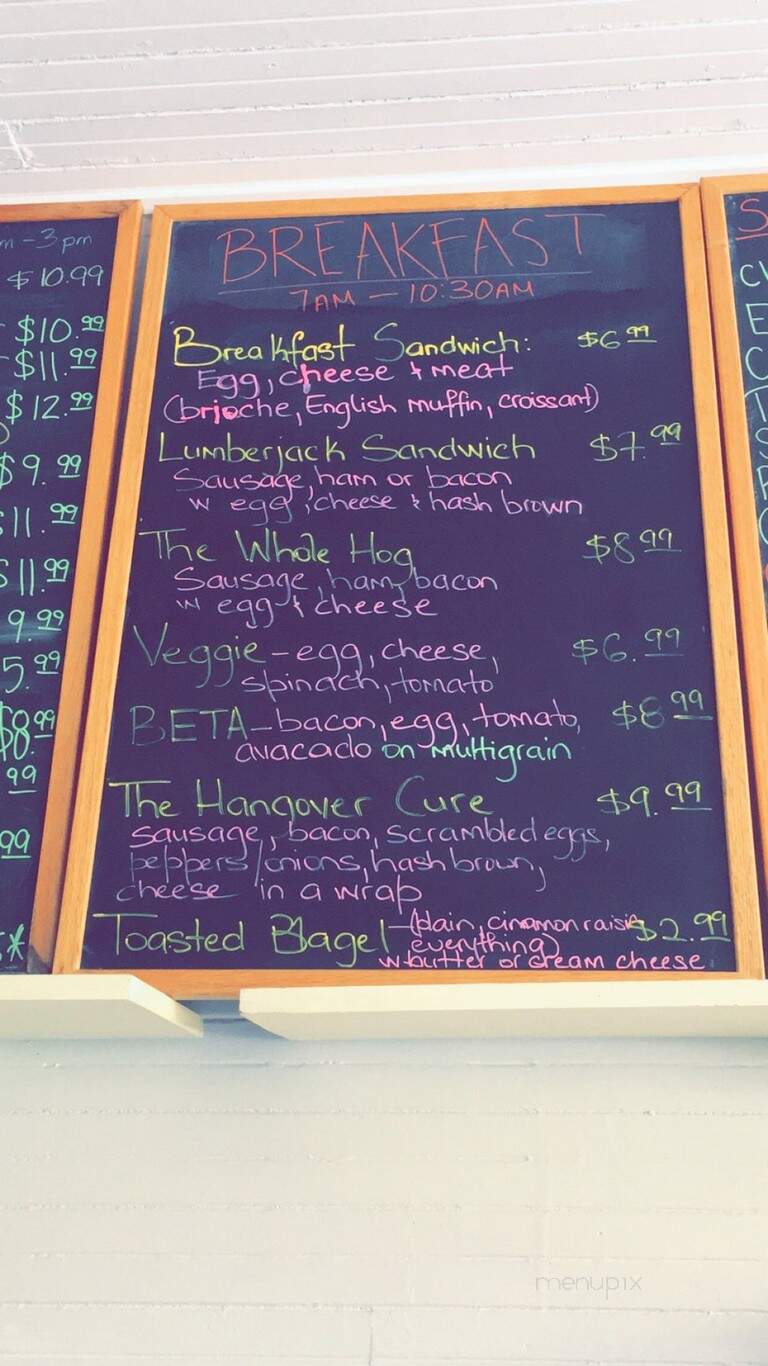 m - 3pm
$10.99
$10.99
$11.99
$12.99
$9.99
$11.99
$11.99
9.99
5.99
$8.99
99
99
BREAKFAST
7AM - 10:30AM
Breakfast Sandwich: $6.99
Egg, cheese & meat
(brioche, English muffin, croissant)
Lumberjack Sandwich $7.99
Sausage, ham or bacon
w egg, cheese & hash brown
The Whole Hog $8.99
Sausage, ham, bacon
w egg & cheese
Veggie - egg, cheese, $6.99
spinach, tomato
BETA - bacon, egg, tomato, $8.99
avacado on multigrain
The Hangover Cure $9.99
sausage, bacon, scrambled eggs,
peppers/onions, hash brown,
cheese in a wrap
Toasted Bagel - (plain, cinamon raisin $2.99
everything)
w butter or cream cheese
menupix